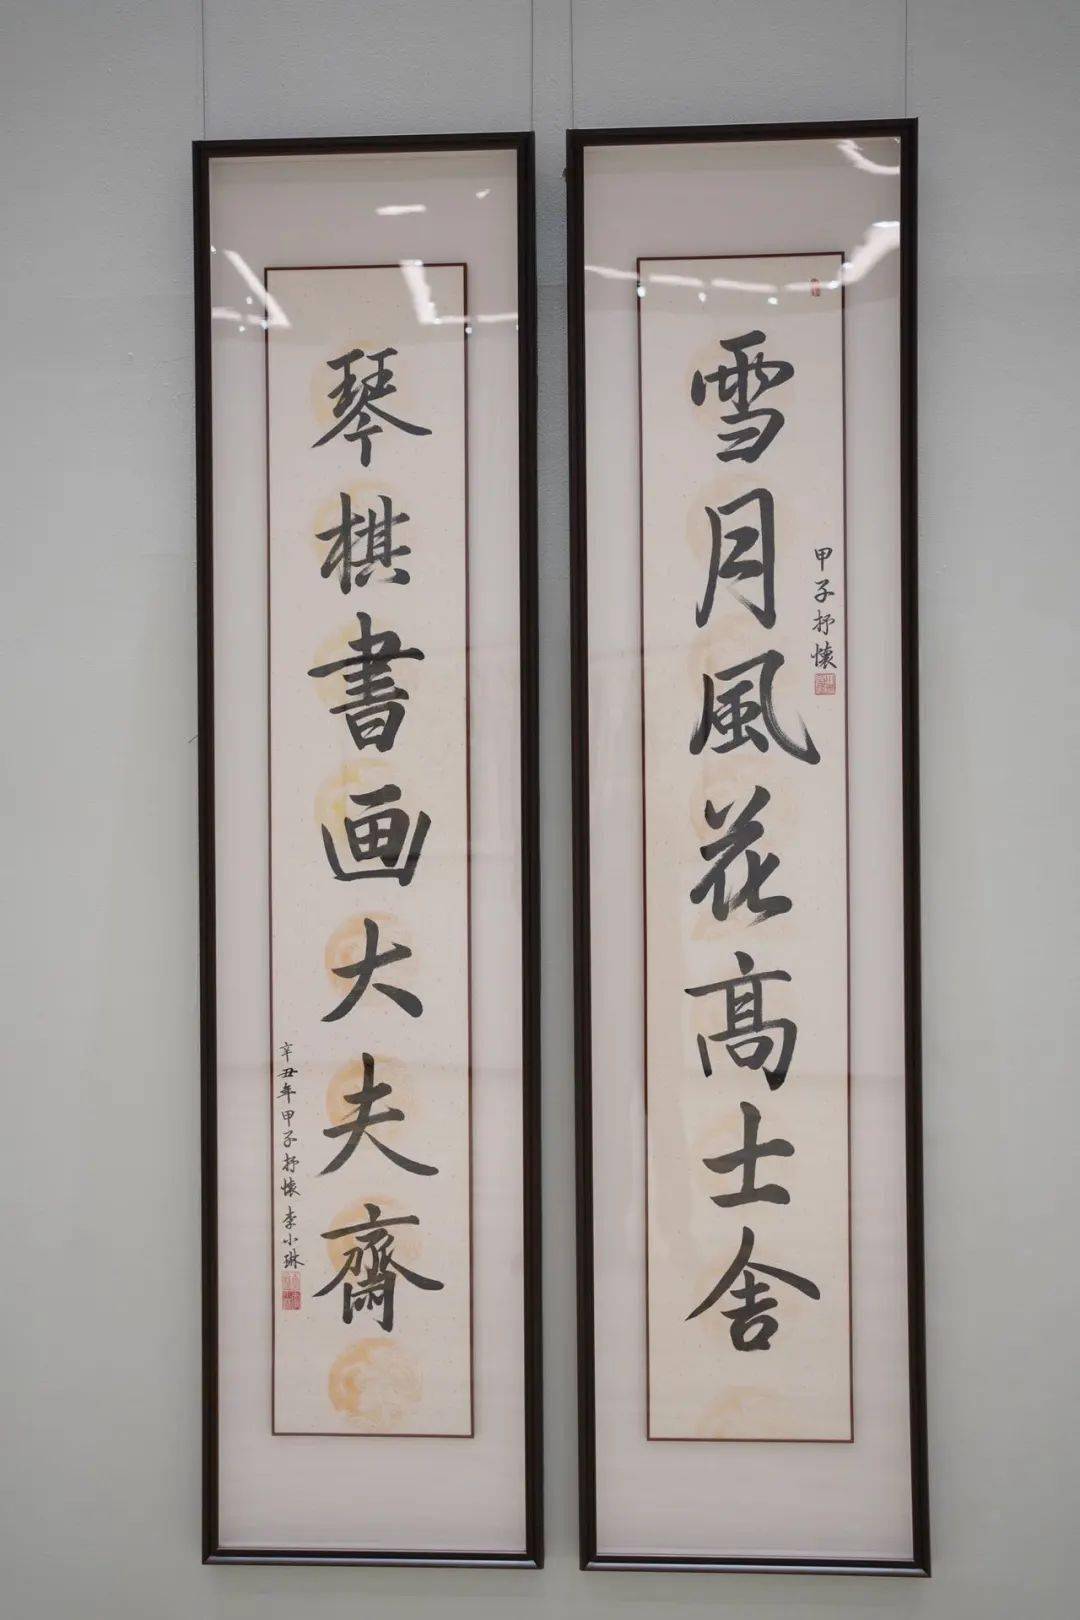 雪月風花高士舍
甲子抒懷
琴棋書画大夫齋
辛丑年甲子抒懷李小琳